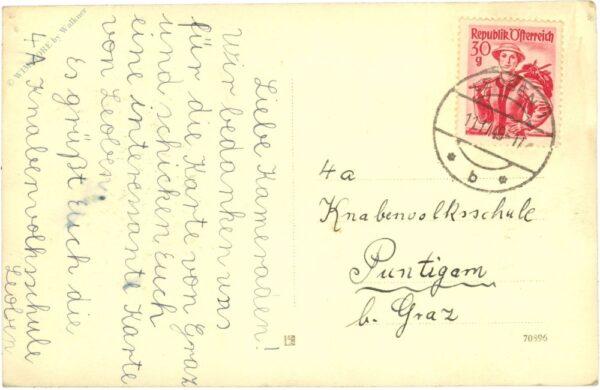 Liebe Kameraden!
Wir bedanken uns
für die Karte von Graz
und schicken Euch
eine interessante Karte
von Leoben.
Es grüßt Euch die
4A Knabenvolkschule
Leoben
Republik Österreich
30
g
b
4a
Knabenvolksschule
Puntigam
b. Graz
70896
by Walkner